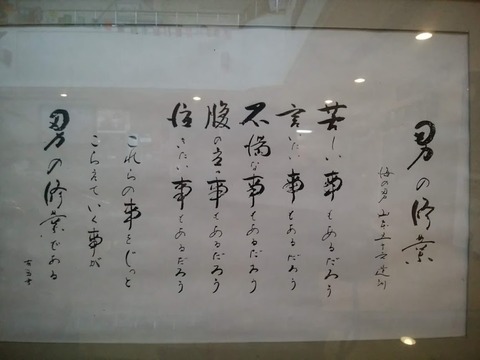 男の修業
海の男 山本五十六
苦しい事もあるだろう
言いたい事もあるだろう
不満な事もあるだろう
腹の立つ事もあるだろう
泣きたい事もあるだろう
これらの事をじっと
こらえていく事が
男の修業である